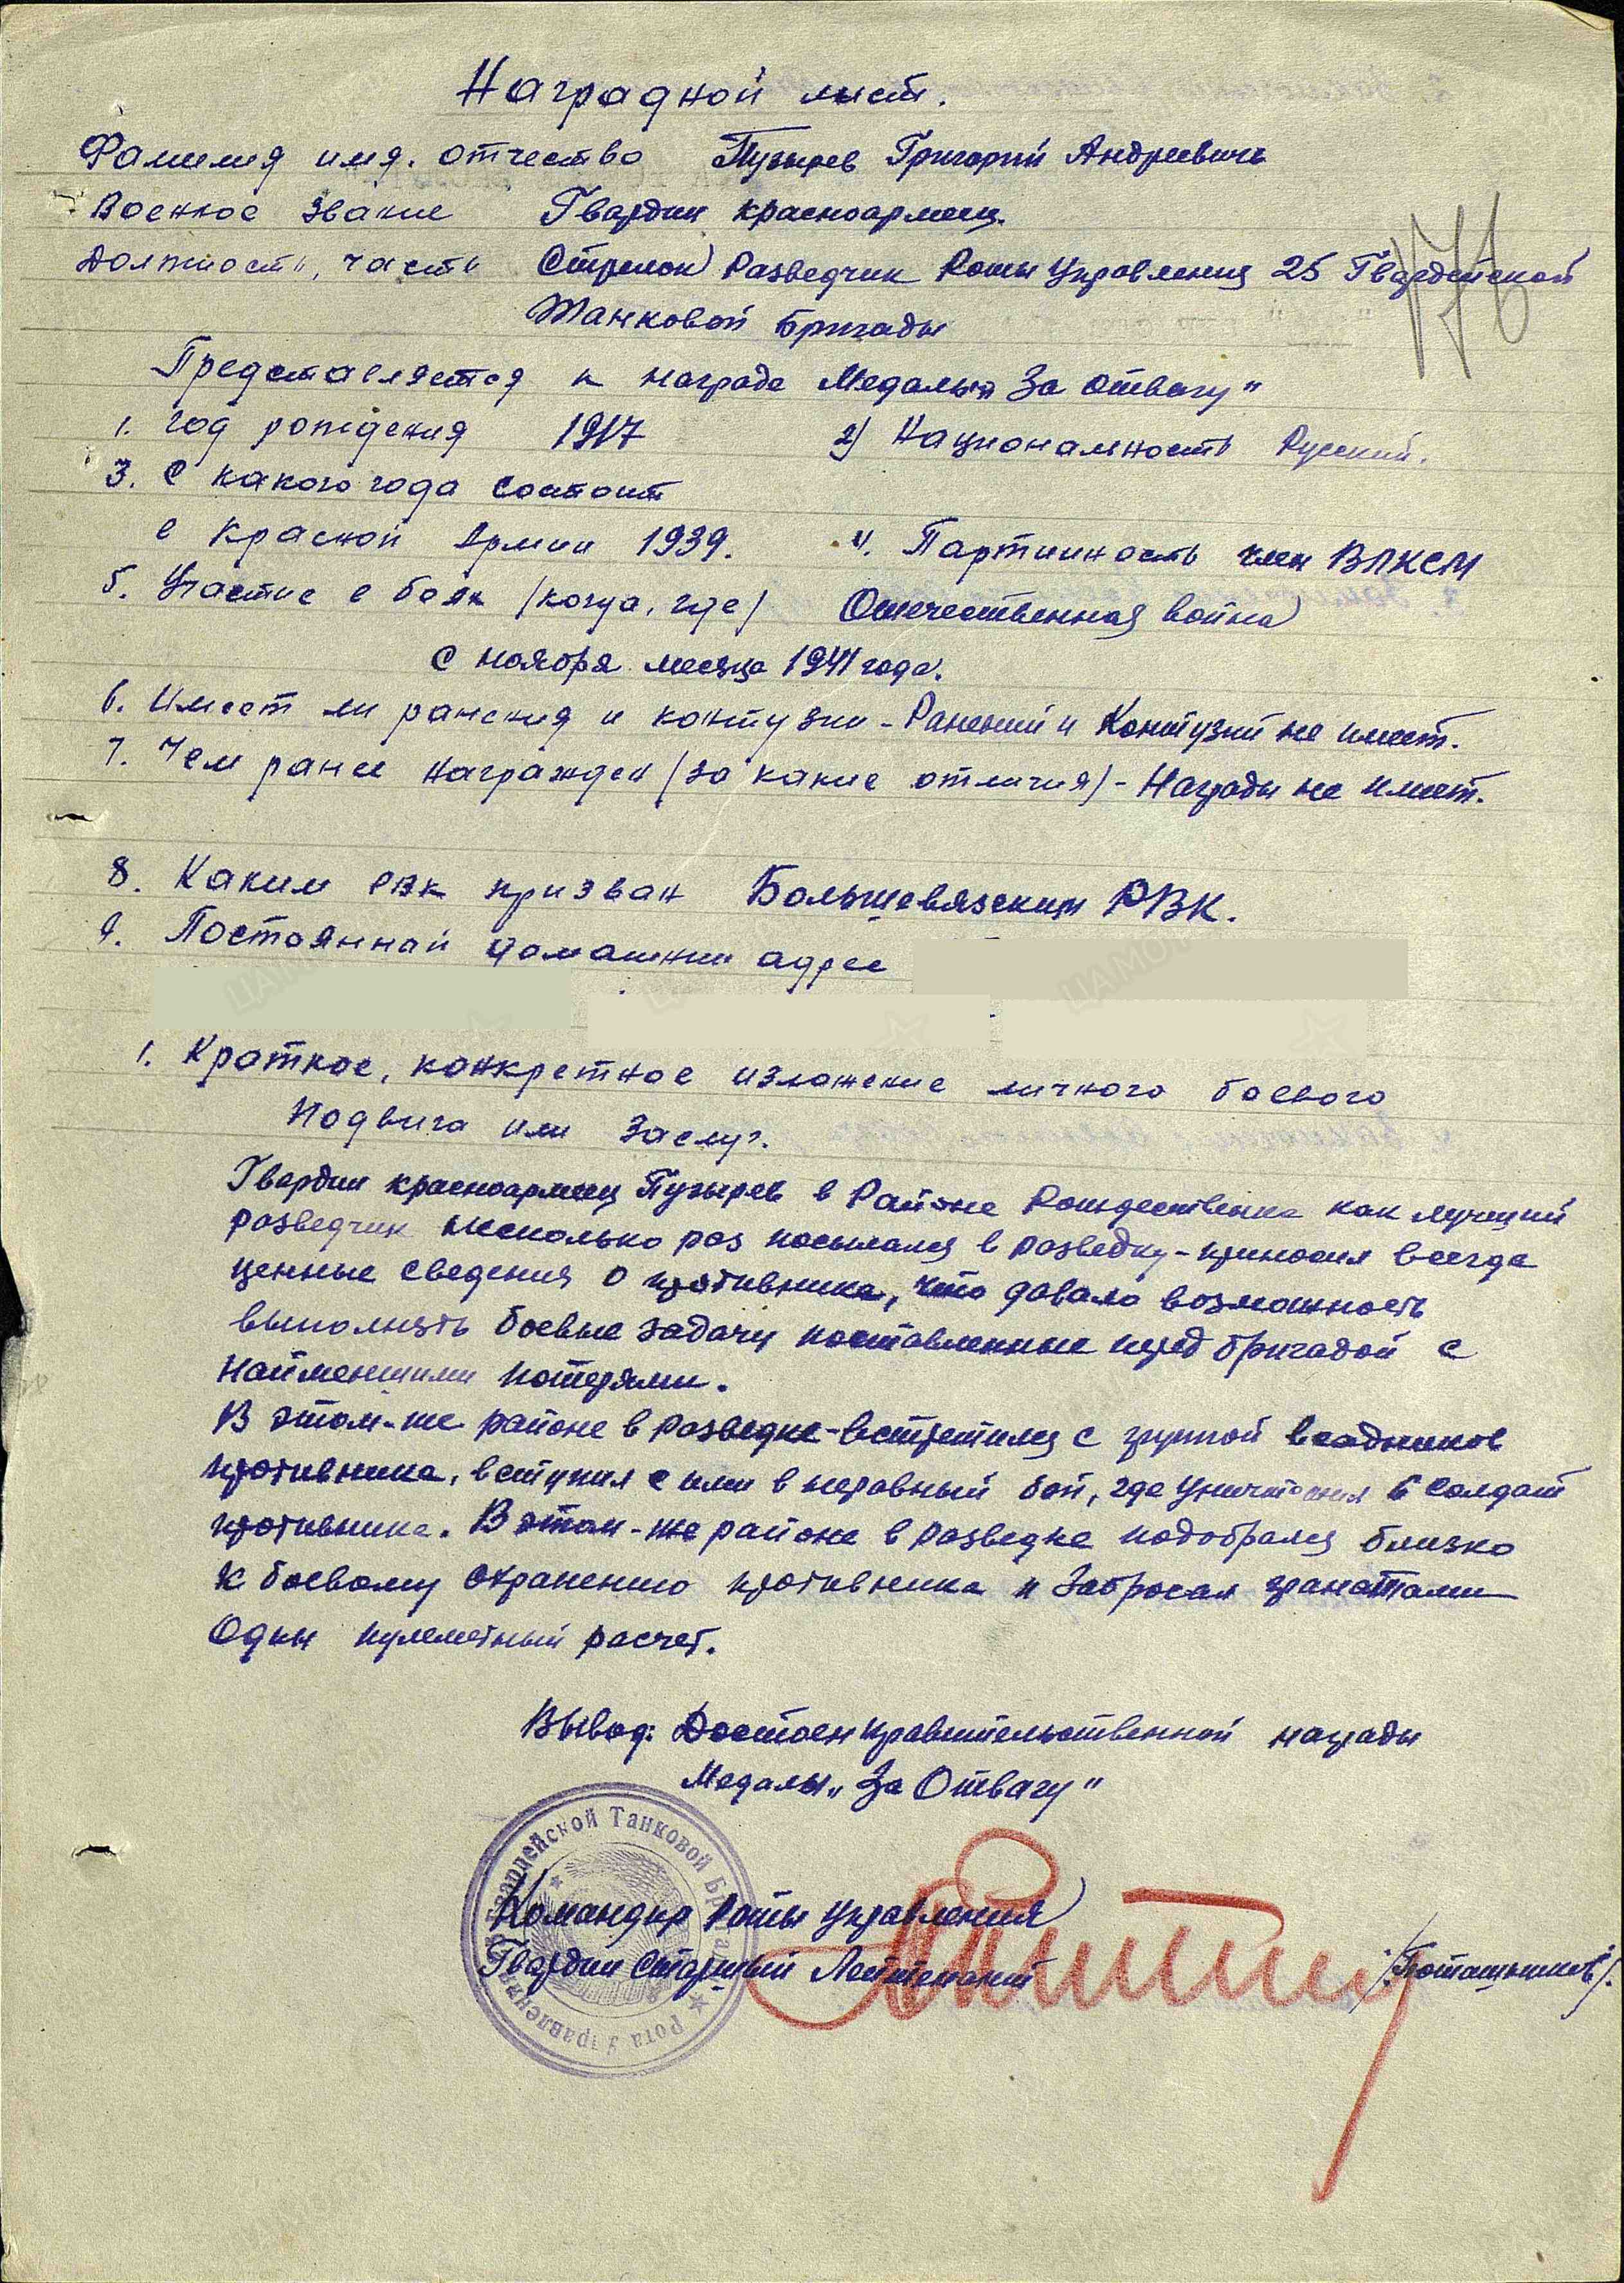 Наградной лист.
176
Фамилия имя. отчество Пузырев Григорий Андреевич
Военное звание Гвардии красноармеец.
Должность, часть Стрелок Разведчик Роты Управления 25 Гвардейской
Танковой Бригады
Представляется к награде Медалью „За отвагу"
1. Год рождения 1917 2) Национальность Русский.
3. С какого года состоит
в Красной Армии 1939. 4. Партийность член ВЛКСМ
5. Участие в боях /когда, где/ Отечественная война
с ноября месяца 1941 года.
6. Имеет ли ранения и контузии - Ранений и Контузий не имеет.
7. Чем ранее награжден /за какие отличия/ - Награды не имеет.
8. Каким РВК призван Большевязскин РВК.
9. Постоянный домашний адрес
1. Краткое, конкретное изложение личного боевого
Подвига или Заслуг.
Гвардии красноармеец Пузырев в Районе Рождественка как лучший
разведчик несколько раз посылался в разведку - приносил всегда
ценные сведения о противнике, что давало возможность
выполнять боевые задачи поставленные перед бригадой с
наименьшими потерями.
В этом-же районе в разведке - встретился с группой всадников
противника, вступил с ими в неравный бой, где уничтожил 6 солдат
противника. В этом-же районе в разведке подобрался близко
к боевому охранению противника и забросал гранатами
Один пулеметный расчет.
Вывод: Достоен правительственной награды
Медалы „За Отвагу"
Гвардейской Танковой Бригады
Рота Управления
Командир Роты Управления
Гвардии Старший Лейтенант /Поташников/.